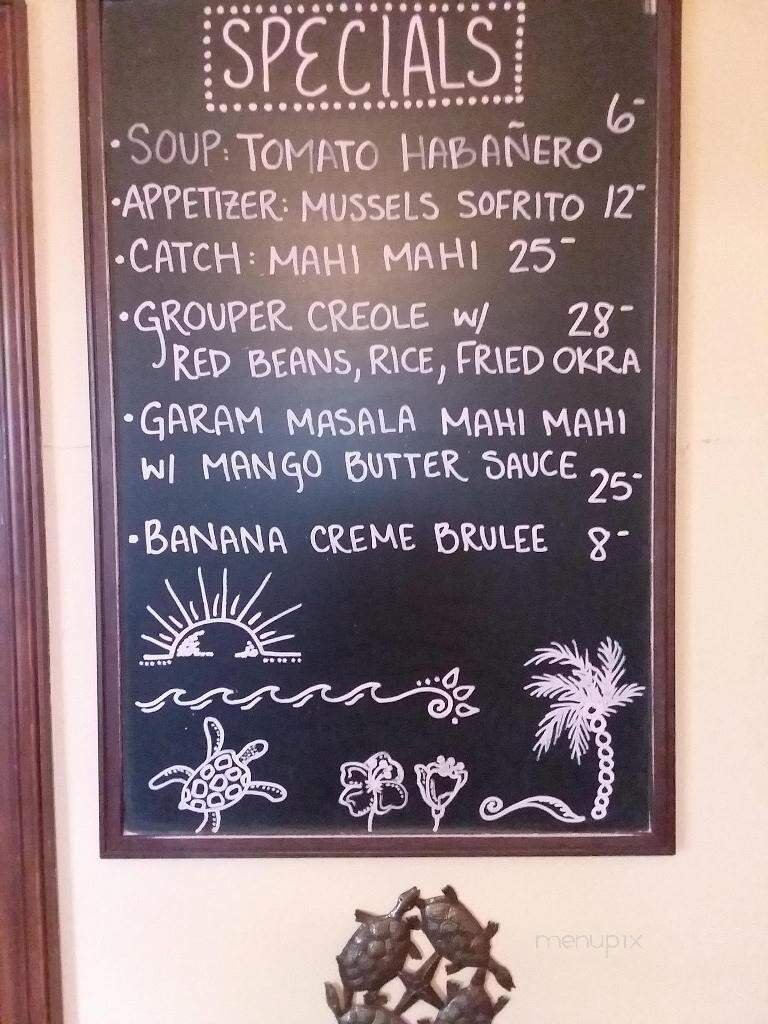 SPECIALS
• SOUP: TOMATO HABAÑERO 6-
• APPETIZER: MUSSELS SOFRITO 12-
• CATCH: MAHI MAHI 25-
• GROUPER CREOLE W/ 28-
RED BEANS, RICE, FRIED OKRA
• GARAM MASALA MAHI MAHI
W/ MANGO BUTTER SAUCE 25-
• BANANA CREME BRULEE 8-
menupix